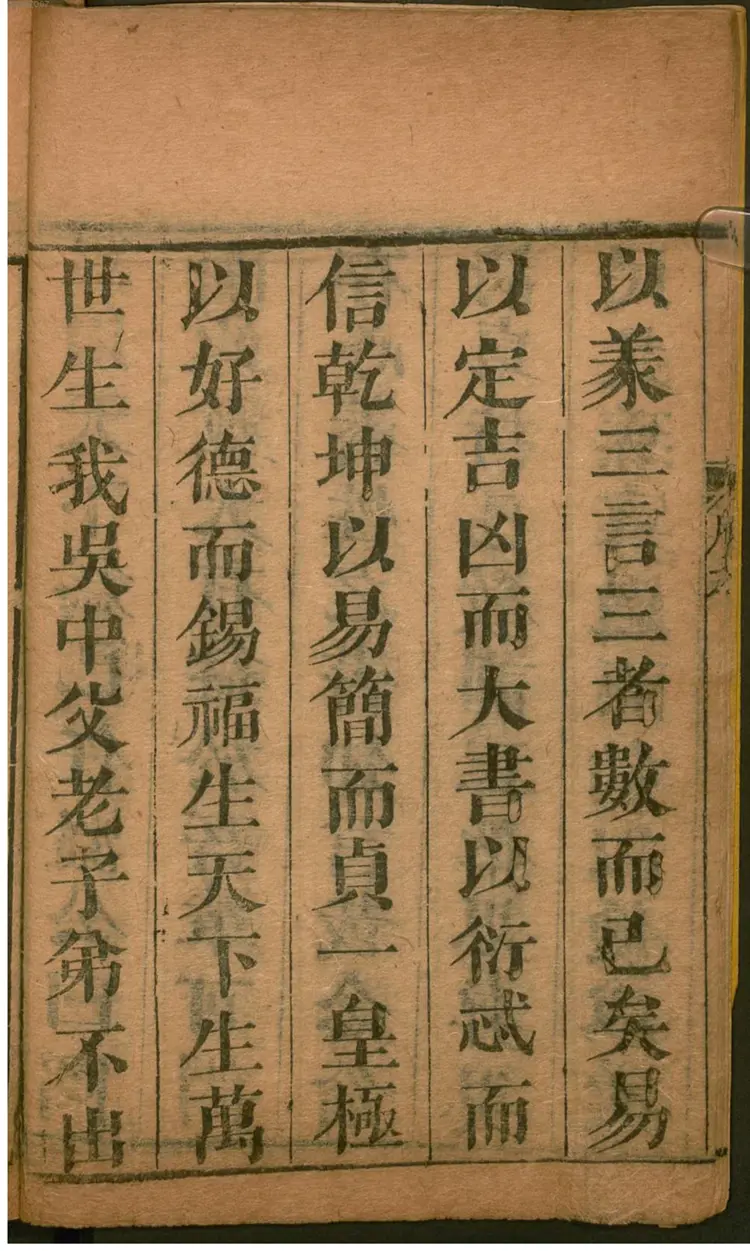 以兼三言三者數而已矣易
以定吉凶而大書以衍忒而
信乾坤以易簡而貞一皇極
以好德而錫福生天下生萬
世生我吳中父老子弟不出